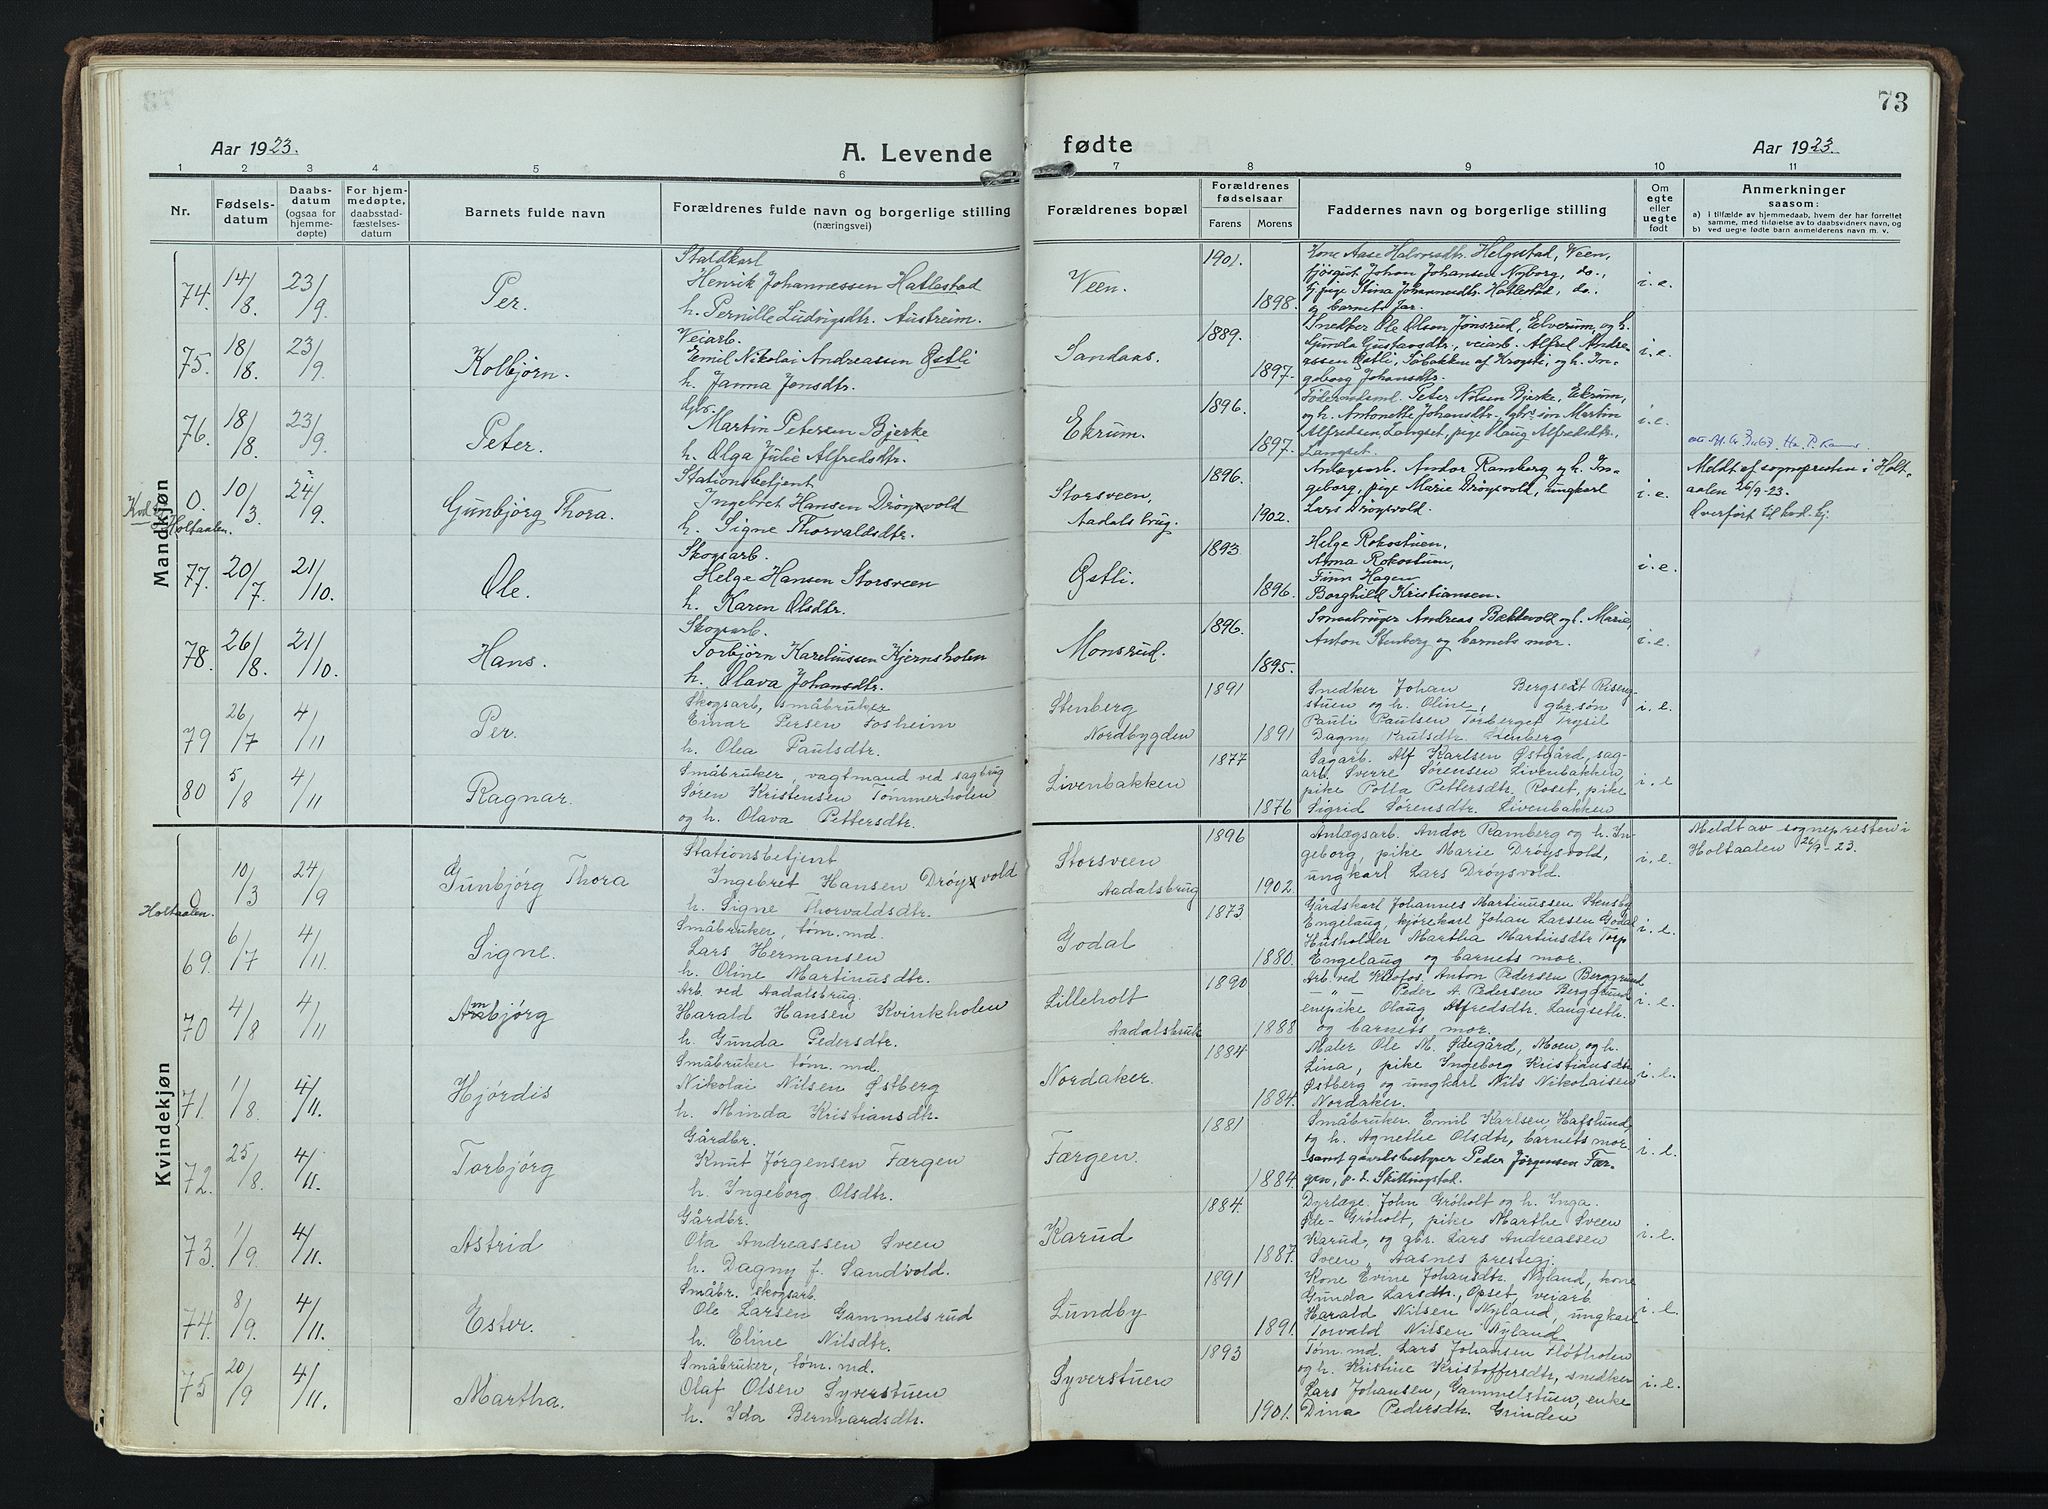 73
Aar 1923.
A. Levende
fødte
Aar 1923.
1 2 3 4 5 6 7 8 9 10 11
Nr.
Fødsels-
datum
Daabs-
datum
(ogsaa for
hjemme-
døpte)
For hjem-
medøpte,
daabsstad-
fæstelses-
datum
Barnets fulde navn
Forældrenes fulde navn og borgerlige stilling
(næringsvei)
Forældrenes bopæl
Forældrenes
fødselsaar
Farens Morens
Faddernes navn og borgerlige stilling
Om
egte
eller
uegte
født
Anmerkninger
saasom:
a) i tilfælde av hjemmedaab, hvem der har forrettet
samme, med tilføielse av to daabsvidners navn, og
b) ved uegte fødte barn anmelderens navn m. v.
Mandkjøn
74. 14/8. 23/9. Per.
Staldkarl
Henrik Johannessen Hatlestad
h. Pernille Ludvigsdtr. Austreim.
Veen. 1901. 1898.
Kone Aase Halvorsdtr. Helgestad, Veen,
fjøsgut Johan Johansen Nyborg, do.,
pige Stina Johannesdtr. Hatlestad, do.,
og barnets far
i. e.
75. 18/8. 23/9. Kolbjørn.
Veiarb.
Emil Nikolai Andreassen Østli
h. Janna Jonsdtr.
Sandaas. 1889. 1897.
Snedker Ole Olsen Jønsrud, Elverum, og h.
Gunda Gustavsdtr., veiarb. Alfred Andre-
assen Østli, Søbakken af Krogsti, og h. In-
geborg Johansdtr.
i. e.
76. 18/8. 23/9. Peter.
Gbr.
Martin Petersen Bjerke
h. Olga Julie Alfredsdtr.
Ekrum. 1896. 1897.
Føderaadsml. Peter Nilsen Bjerke, Ekrum,
og h. Antonette Johansdtr., gbr. søn Martin
Alfredsen, Langset, pige Olaug Alfredsdtr.,
Langset.
i. e.
Kvd.kj.
Holtaalen.
0. 10/3. 24/9. Gunbjørg Thora.
Stationsbetjent
Ingebret Hansen Drøyvold
h. Signe Thorvaldsdtr.
Storsveen,
Aadals brug. 1896. 1902.
Anlægsarb. Andor Ramberg og h. In-
geborg, pige Marie Drøysvold, ungkarl
Lars Drøysvold.
i. e.
Meldt af sognepresten i Holt-
aalen 26/9-23.
Overført til kvd. kj.
77. 20/7. 21/10. Ole.
Skogsarb.
Helge Hansen Storsveen
h. Karen Olsdtr.
Østli. 1893. 1896.
Helge Rokostuen,
Anna Rokostuen,
Finn Hagen
Borghild Kristiansen.
i. e.
78. 26/8. 21/10. Hans.
Skogsarb.
Torbjørn Kareliussen Kjernsholen
h. Olava Johansdtr.
Monsrud. 1896. 1895.
Smaabruger Andreas Bækkevold og h. Marie,
Anton Stenberg og barnets mor.
i. e.
79 26/7 4/11 Per.
Skogsarb, småbruker
Einar Persen Fosheim
h. Olea Paulsdtr.
Stenberg
Nordbygden 1891 1891
Snedker Johan Bergset Riseng-
stuen og h. Oline, gbr.søn
Pauli Paulsen Torberget Trysil
Dagny Paulsdtr. Stenberg
i. e.
80 5/8 4/11 Ragnar.
Småbruker, vagtmand ved sagbrug
Søren Kristensen Tømmerholen
og h. Olava Pettersdtr.
Livenbakken 1877 1876
Sagarb. Alf Karlsen Østgård, sag-
arb. Sverre Sørensen Livenbakken,
pike Polla Pettersdtr. Roset, pike
Sigrid Sørensdtr. Livenbakken
i. e
Kvindekjøn
0 10/3 24/9 Gunbjörg Thora
Holtaalen.
Stationsbetjent
Ingebret Hansen Drøyvold
h. Signe Thorvaldsdtr.
Storsveen
Aadalsbrug 1896 1902.
Anlægsarb. Andor Ramberg og h. In-
geborg, pike Marie Drøysvold,
ungkarl Lars Drøysvold.
i. e.
Meldt av sognepresten i
Holtaalen 26/9-23.
69. 6/7 4/11. Signe.
Småbruker, tøm. md.
Lars Hermansen
h. Oline Martinusdtr.
Godal 1873 1880.
Gårdskarl Johannes Martinussen Stensby
Engelaug, kjørekarl Johan Larsen Godal
Husholder Martha Martinsdtr Torp
Engelaug og barnets mor.
i. e.
70 4/8 4/11. Ambjørg
Arb. ved Aadalsbrug.
Harald Hansen Kvinkholen
h. Gunda Pedersdtr.
Lilleholt
Aadalsbruk 1890 1888
Arb. ved Klofos, Anton Pedersen Berggrund
— " — Peder A. Pedersen Berggrund
enepike Olaug Alfredsdtr. Langseth.
og barnets mor.
i. e.
71. 1/8 4/11. Hjördis
Småbruker tøm. md.
Nikolai Nilsen Østberg
h. Minda Kristiansdtr.
Nordaker. 1884 1884.
Maler Ole M. Ødegård, Moen, og h.
Lina, pike Ingeborg Kristiansdtr
Østberg og ungkarl Nils Nikolaisen
Nordaker.
i. e.
72. 25/8. 4/11. Torbjörg
Gårdbr.
Knut Jørgensen Færgen
h. Ingeborg Olsdtr.
Færgen. 1881 1884.
Småbruker Emil Karlsen Hafslund,
og h. Agnethe Olsdtr, barnets mor
samt gaardsbestyrer Peder Jørgensen Fær-
gen, p. t. Skillingstad.
i. e.
73. 1/9. 4/11. Astrid
Gårdbr.
Ola Andreassen Sveen
h. Dagny f. Sandvold.
Karud 1884. 1887.
Dyrlæge John Gróholt og h. Inga
Øde-Gróholt, pike Marthe Sveen
Karud, og gbr. Lars Andreassen
Sveen, Aasnes prestegj.
i. e.
74. 8/9. 4/11. Ester.
Småbr. skogsarb.
Ole Larsen Gammelsrud
h. Eline Nilsdtr.
Lundby 1891 1891.
Kone Evine Johansdtr. Nyland, kone
Gunda Larsdtr., Opset, veiarb.
Harald Nilsen Nyland, ungkarl
Torvald Nilsen Nyland
i. e.
75 20/9 4/11. Martha.
Småbruker, tøm. md.
Olaf Olsen Syverstuen
h. Ida Bernhardsdtr.
Syverstuen 1893 1901.
Tøm. md. Lars Johansen Fløtholen
og h. Kristine Kristoffersdtr, snedker
Lars Johansen, Gammelstuen, enke
Dina Pedersdtr. Grinden
i. e.